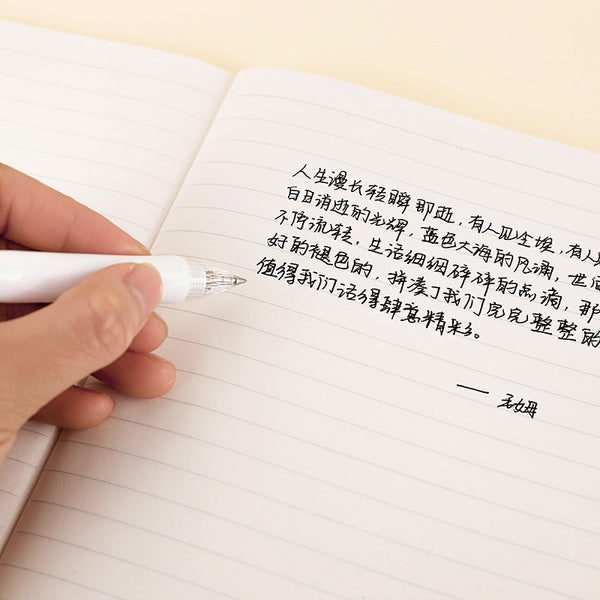 人生漫长轻瞬即逝,有人见尘埃,有人
白日消逝的光辉,蓝色大海的风滴,世
不停流转,生活细细碎碎的点滴,那
好的褪色的,拼凑了我们完完整整的
值得我们活得肆意精彩。
—— 孟姆